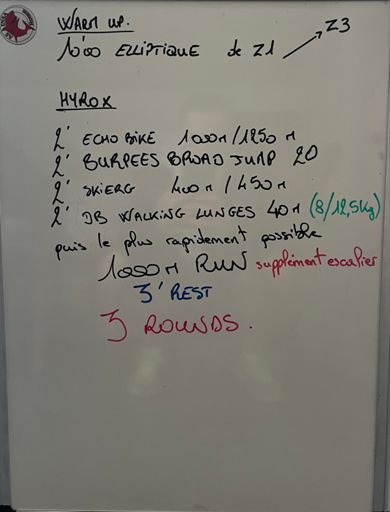 WARM UP.
10'00 ELLIPTIQUE de Z1 Z3
HYROX
2' ECHO BIKE 1000M/1250M
2' BURPEES BROAD JUMP 20
2' SKIERG 400M/450M
2' DB WALKING LUNGES 40M (8/12,5kg)
puis le plus rapidement possible
1000M RUN supplément escalier
3' REST
3 ROUNDS.